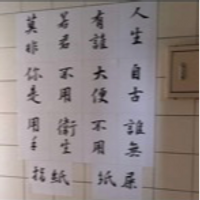 人生自古誰無屎
有誰大便不用紙
若君不用衛生紙
莫非你是用手指